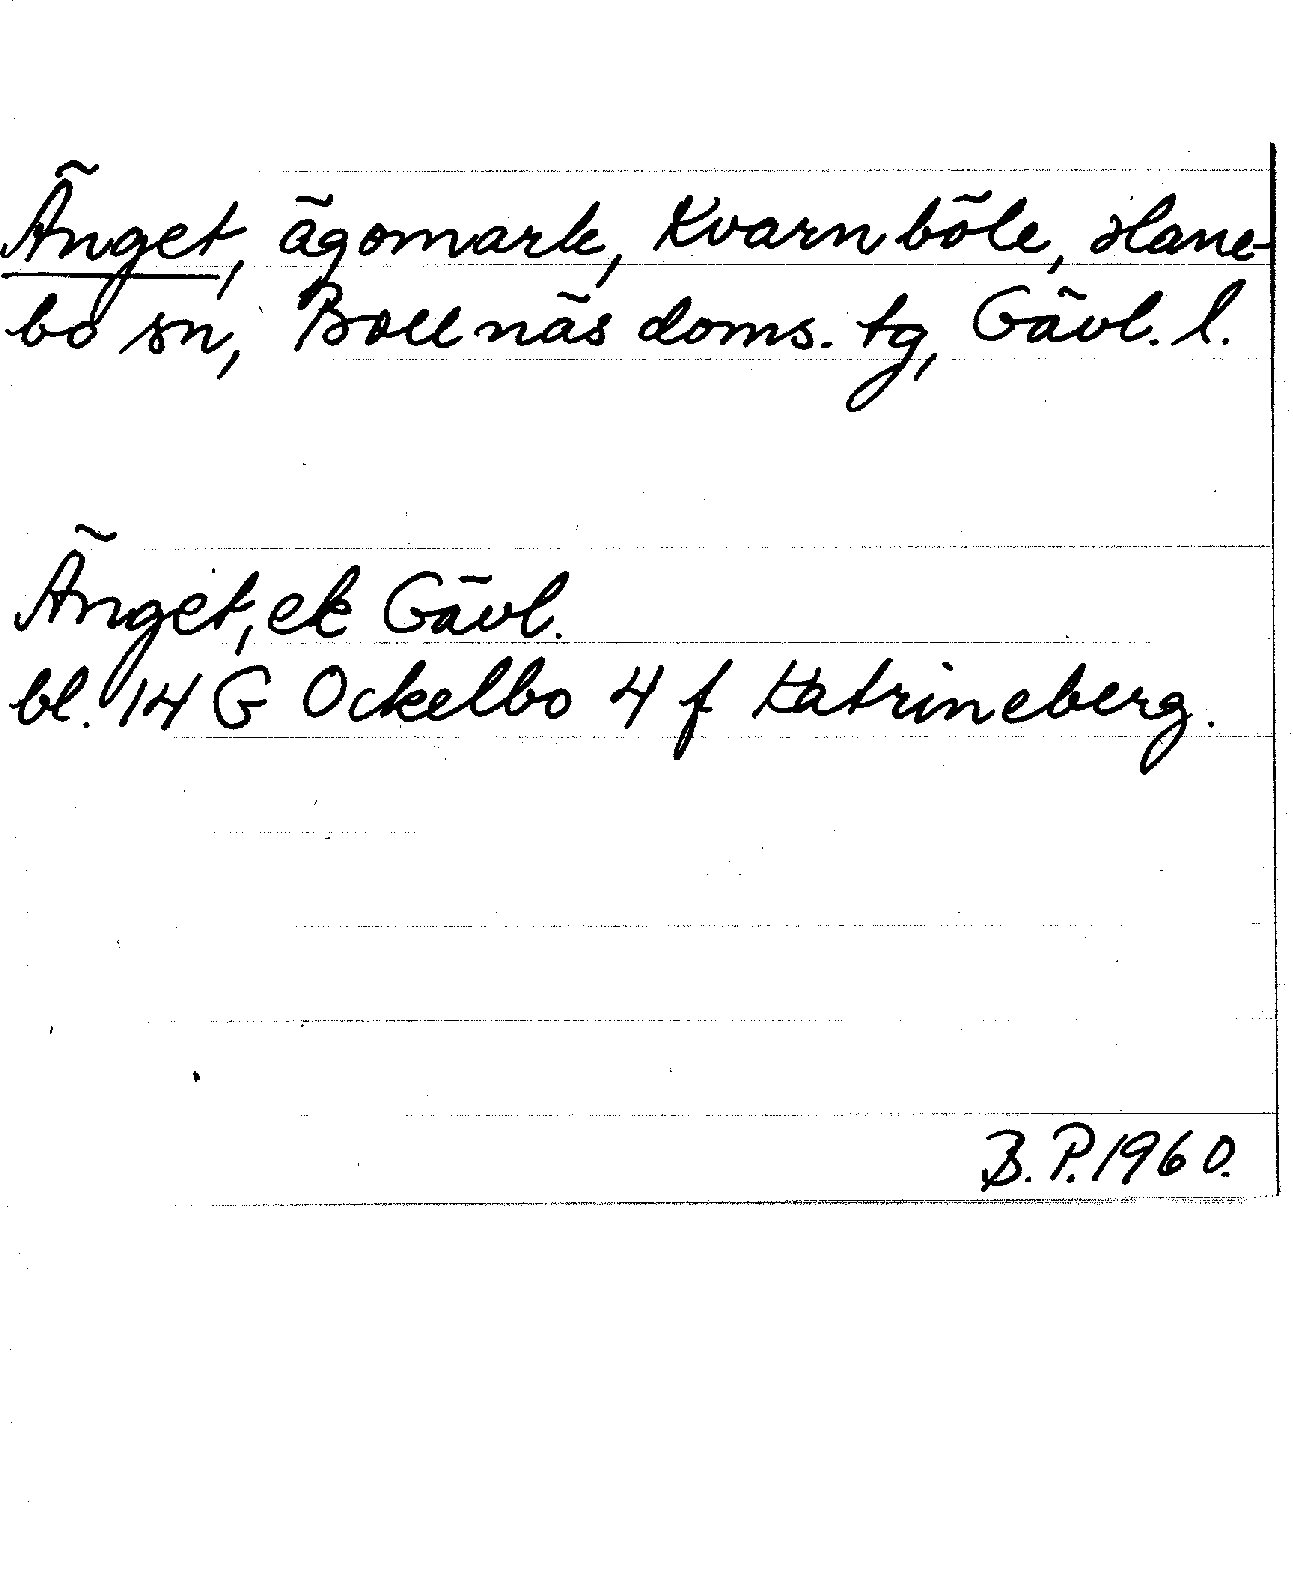 Änget, ägomark, Kvarnböle, Hane-
bo sn, Bollnäs doms. tg, Gävl. l.
Änget, ek Gävl.
bl. 14 G Ockelbo 4 f Katrineberg.
B. P. 1960.